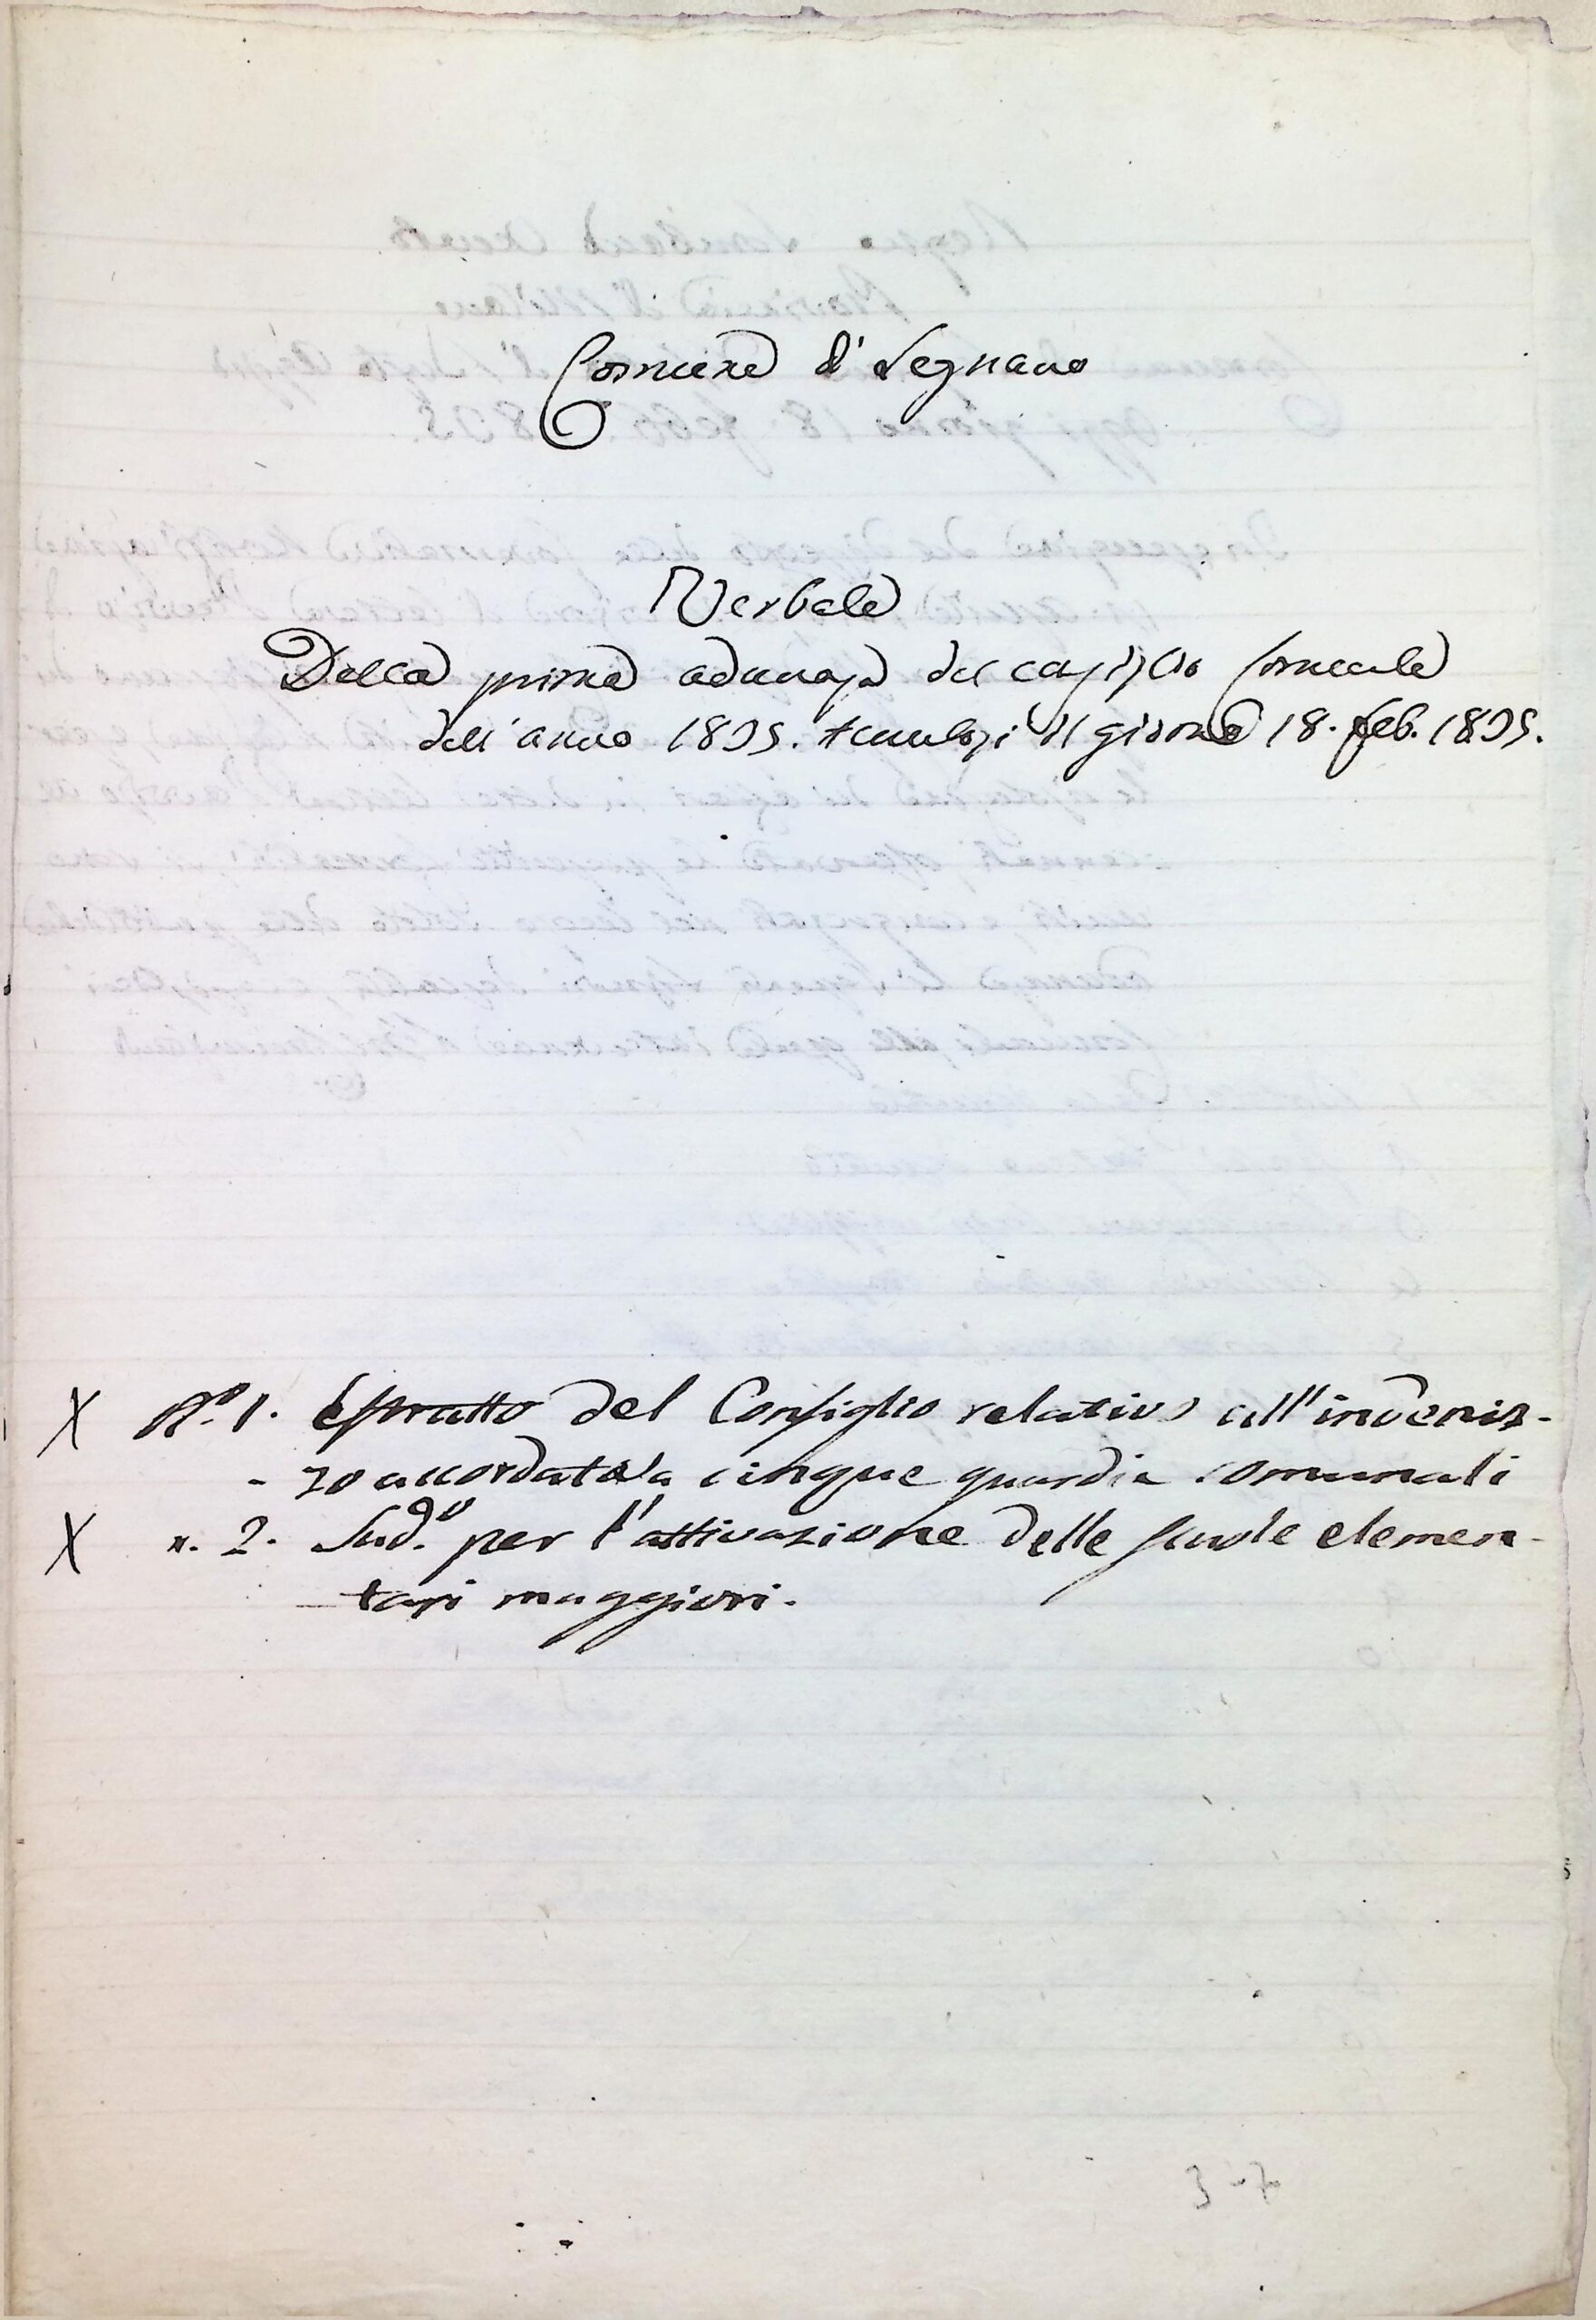 Comune d' Legnano
Verbale
Della prima adunaza del consiglio Comunale
dell' anno tenutosi il giorno 18. feb.
X N.º 1. Estratto del Consiglio relativo all'indeniz-
- zo accordato a cinque guardie comunali
X n. 2. Sud.º per l'attivazione delle scuole elemen-
tari maggiori.